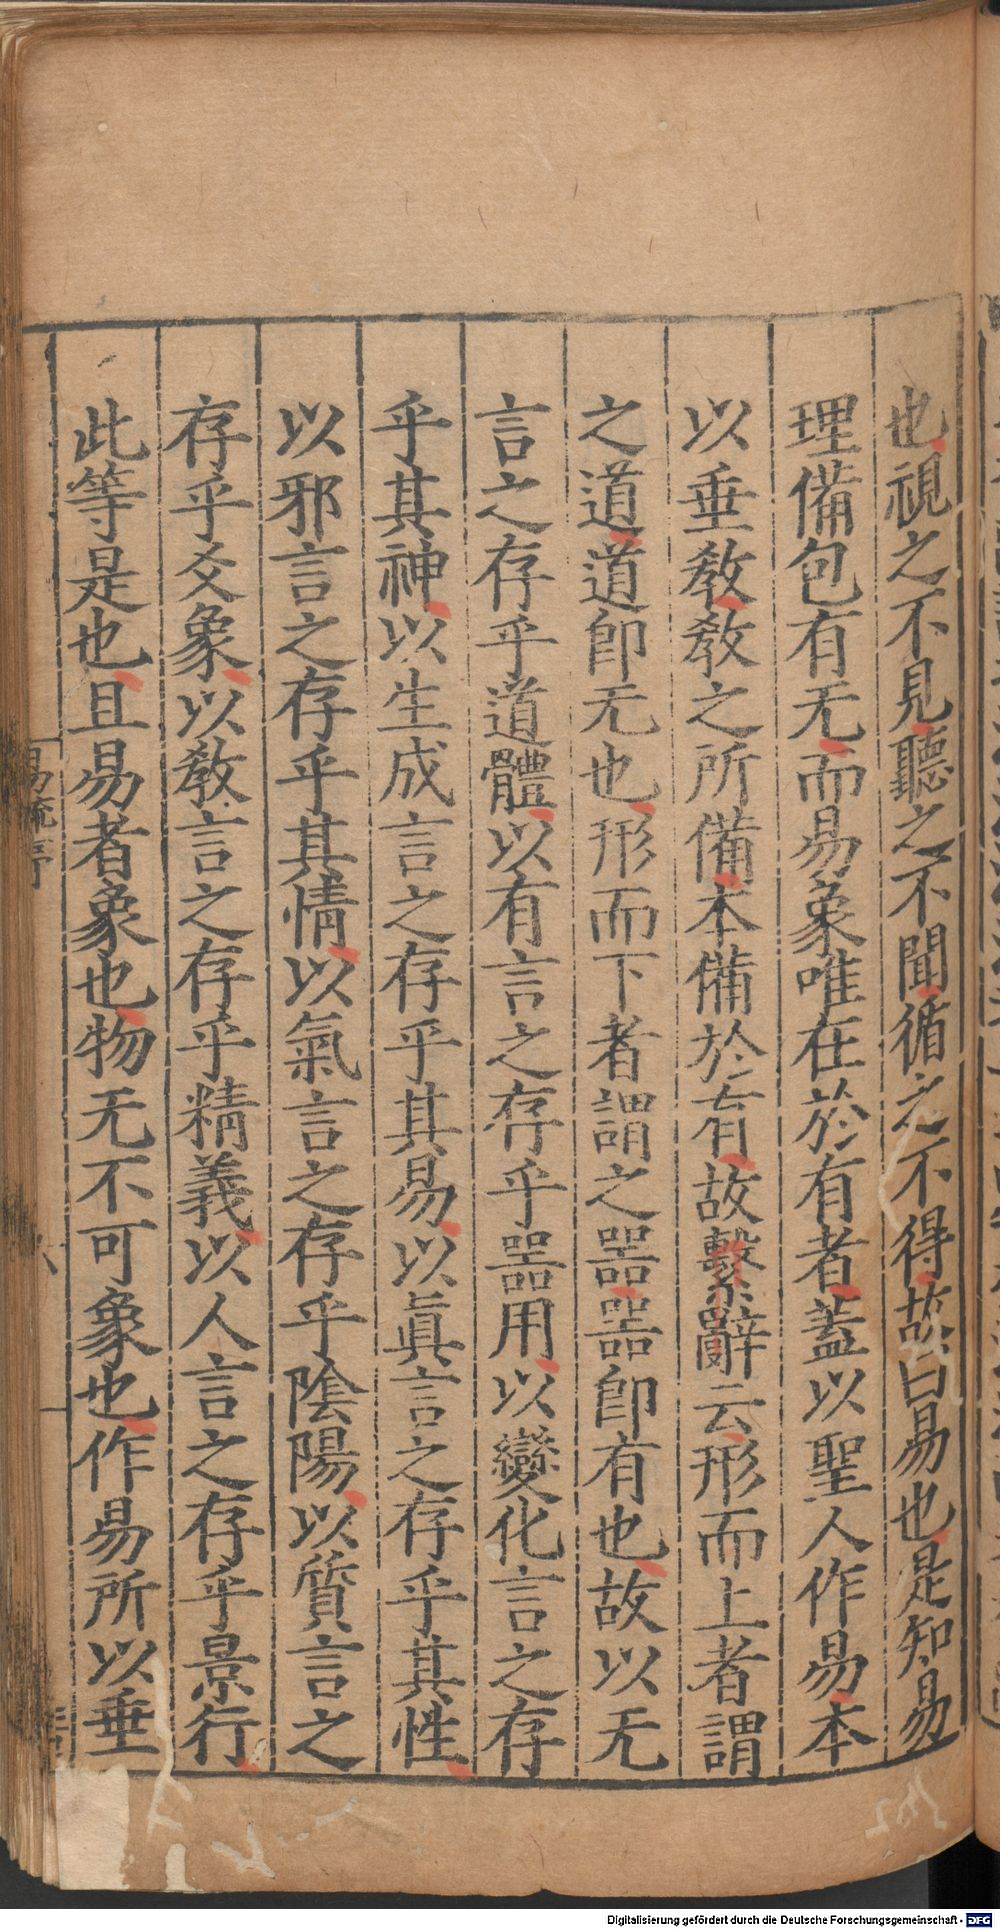 也視之不見聽之不聞循之不得故曰易也是知易
理備包有无而易象唯在於有者蓋以聖人作易本
以垂敎敎之所備本備於有故繫辭云形而上者謂
之道道卽无也形而下者謂之噐噐卽有也故以无
言之存乎道體以有言之存乎噐用以變化言之存
乎其神以生成言之存乎其易以眞言之存乎其性
以邪言之存乎其情以氣言之存乎陰陽以質言之
存乎爻象以敎言之存乎精義以人言之存乎景行
此等是也且易者象也物无不可象也作易所以垂
易疏序
Digitalisierung gefördert durch die Deutsche Forschungsgemeinschaft - DFG